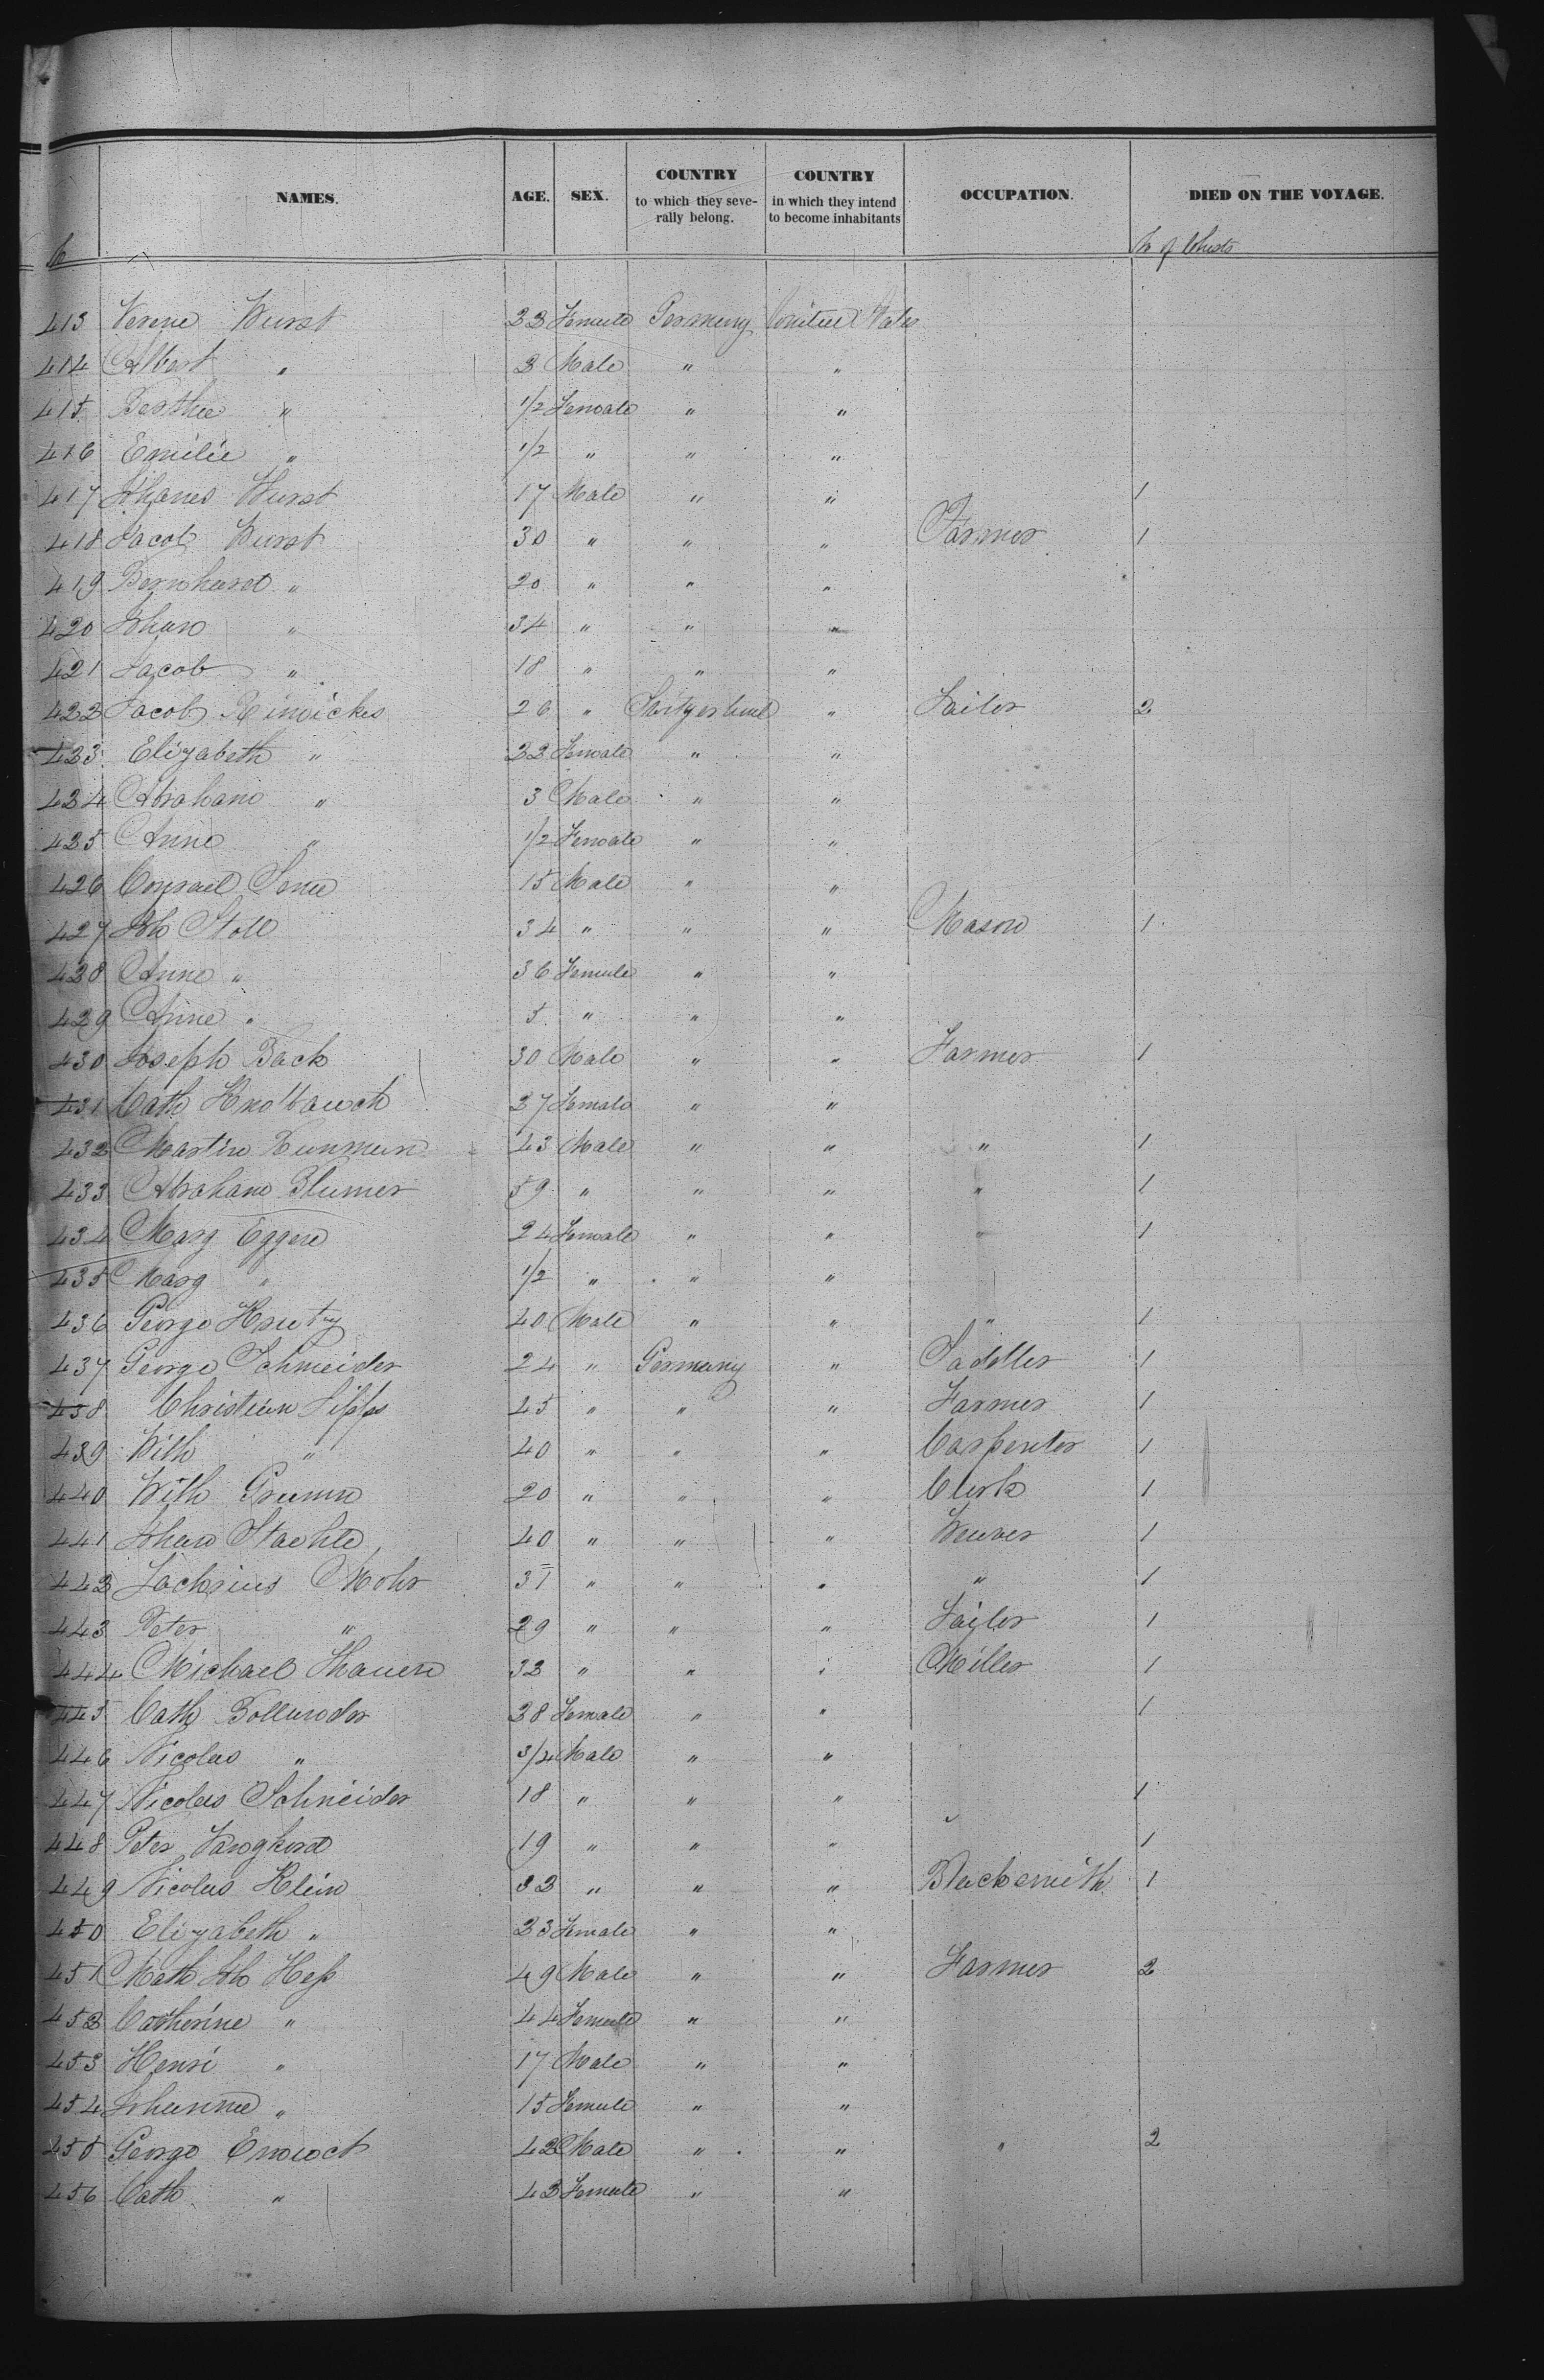 NAMES. AGE. SEX. COUNTRY to which they severally belong. COUNTRY in which they intend to become inhabitants OCCUPATION. DIED ON THE VOYAGE.
6 No of Chests
413 Verene Wurst 33 Female Germany United States
414 Albert " 3 Male " "
415 Berthe " 1/2 Female " "
416 Emilie " 1/2 " " "
417 Johanes Wurst 17 Male " " 1
418 Jacob Wurst 30 " " " Farmer 1
419 Bernhard " 20 " " "
420 Johan " 34 " " "
421 Jacob " 18 " " "
422 Jacob 26 " Switzerland " Tailor 2
423 Elizabeth " 22 Female " "
424 Abraham " 3 Male " "
425 Anne " 1/2 Female " "
426 Conrad 15 Male " "
427 Joh Stoll 34 " " " Mason 1
428 Anne " 36 Female " "
429 Anne " 5 " " "
430 Joseph Back 30 Male " " Farmer 1
431 Cath 27 Female " "
432 Martin 43 Male " " " 1
433 Abraham Blumer 59 " " " " 1
434 Marg Eggen 24 Female " " " 1
435 Marg " 1/2 " " "
436 George 40 Male " " " 1
437 George Schmeider 24 " Germany " Saddler 1
438 Christian Lipps 25 " " " Farmer 1
439 Wilh " 40 " " " Carpenter 1
440 Wilh Grumm 20 " " " Clerk 1
441 Johan Staehle 40 " " " Weaver 1
442 Mohr 31 " " " " 1
443 Peter " 29 " " " Tailor 1
444 Michael 32 " " " Miller 1
445 Cath 38 Female " " 1
446 Nicolas " 3/4 Male " "
447 Nicolas Schneider 18 " " " 1
448 Peter 19 " " " 1
449 Nicolas Klein 32 " " " Blacksmith 1
450 Elizabeth " 23 Female " "
451 Math Joh Heß 49 Male " " Farmer 2
452 Catherine " 44 Female " "
453 Henri " 17 Male " "
454 Johanna " 15 Female " "
455 George 42 Male " " " 2
456 Cath " 43 Female " "